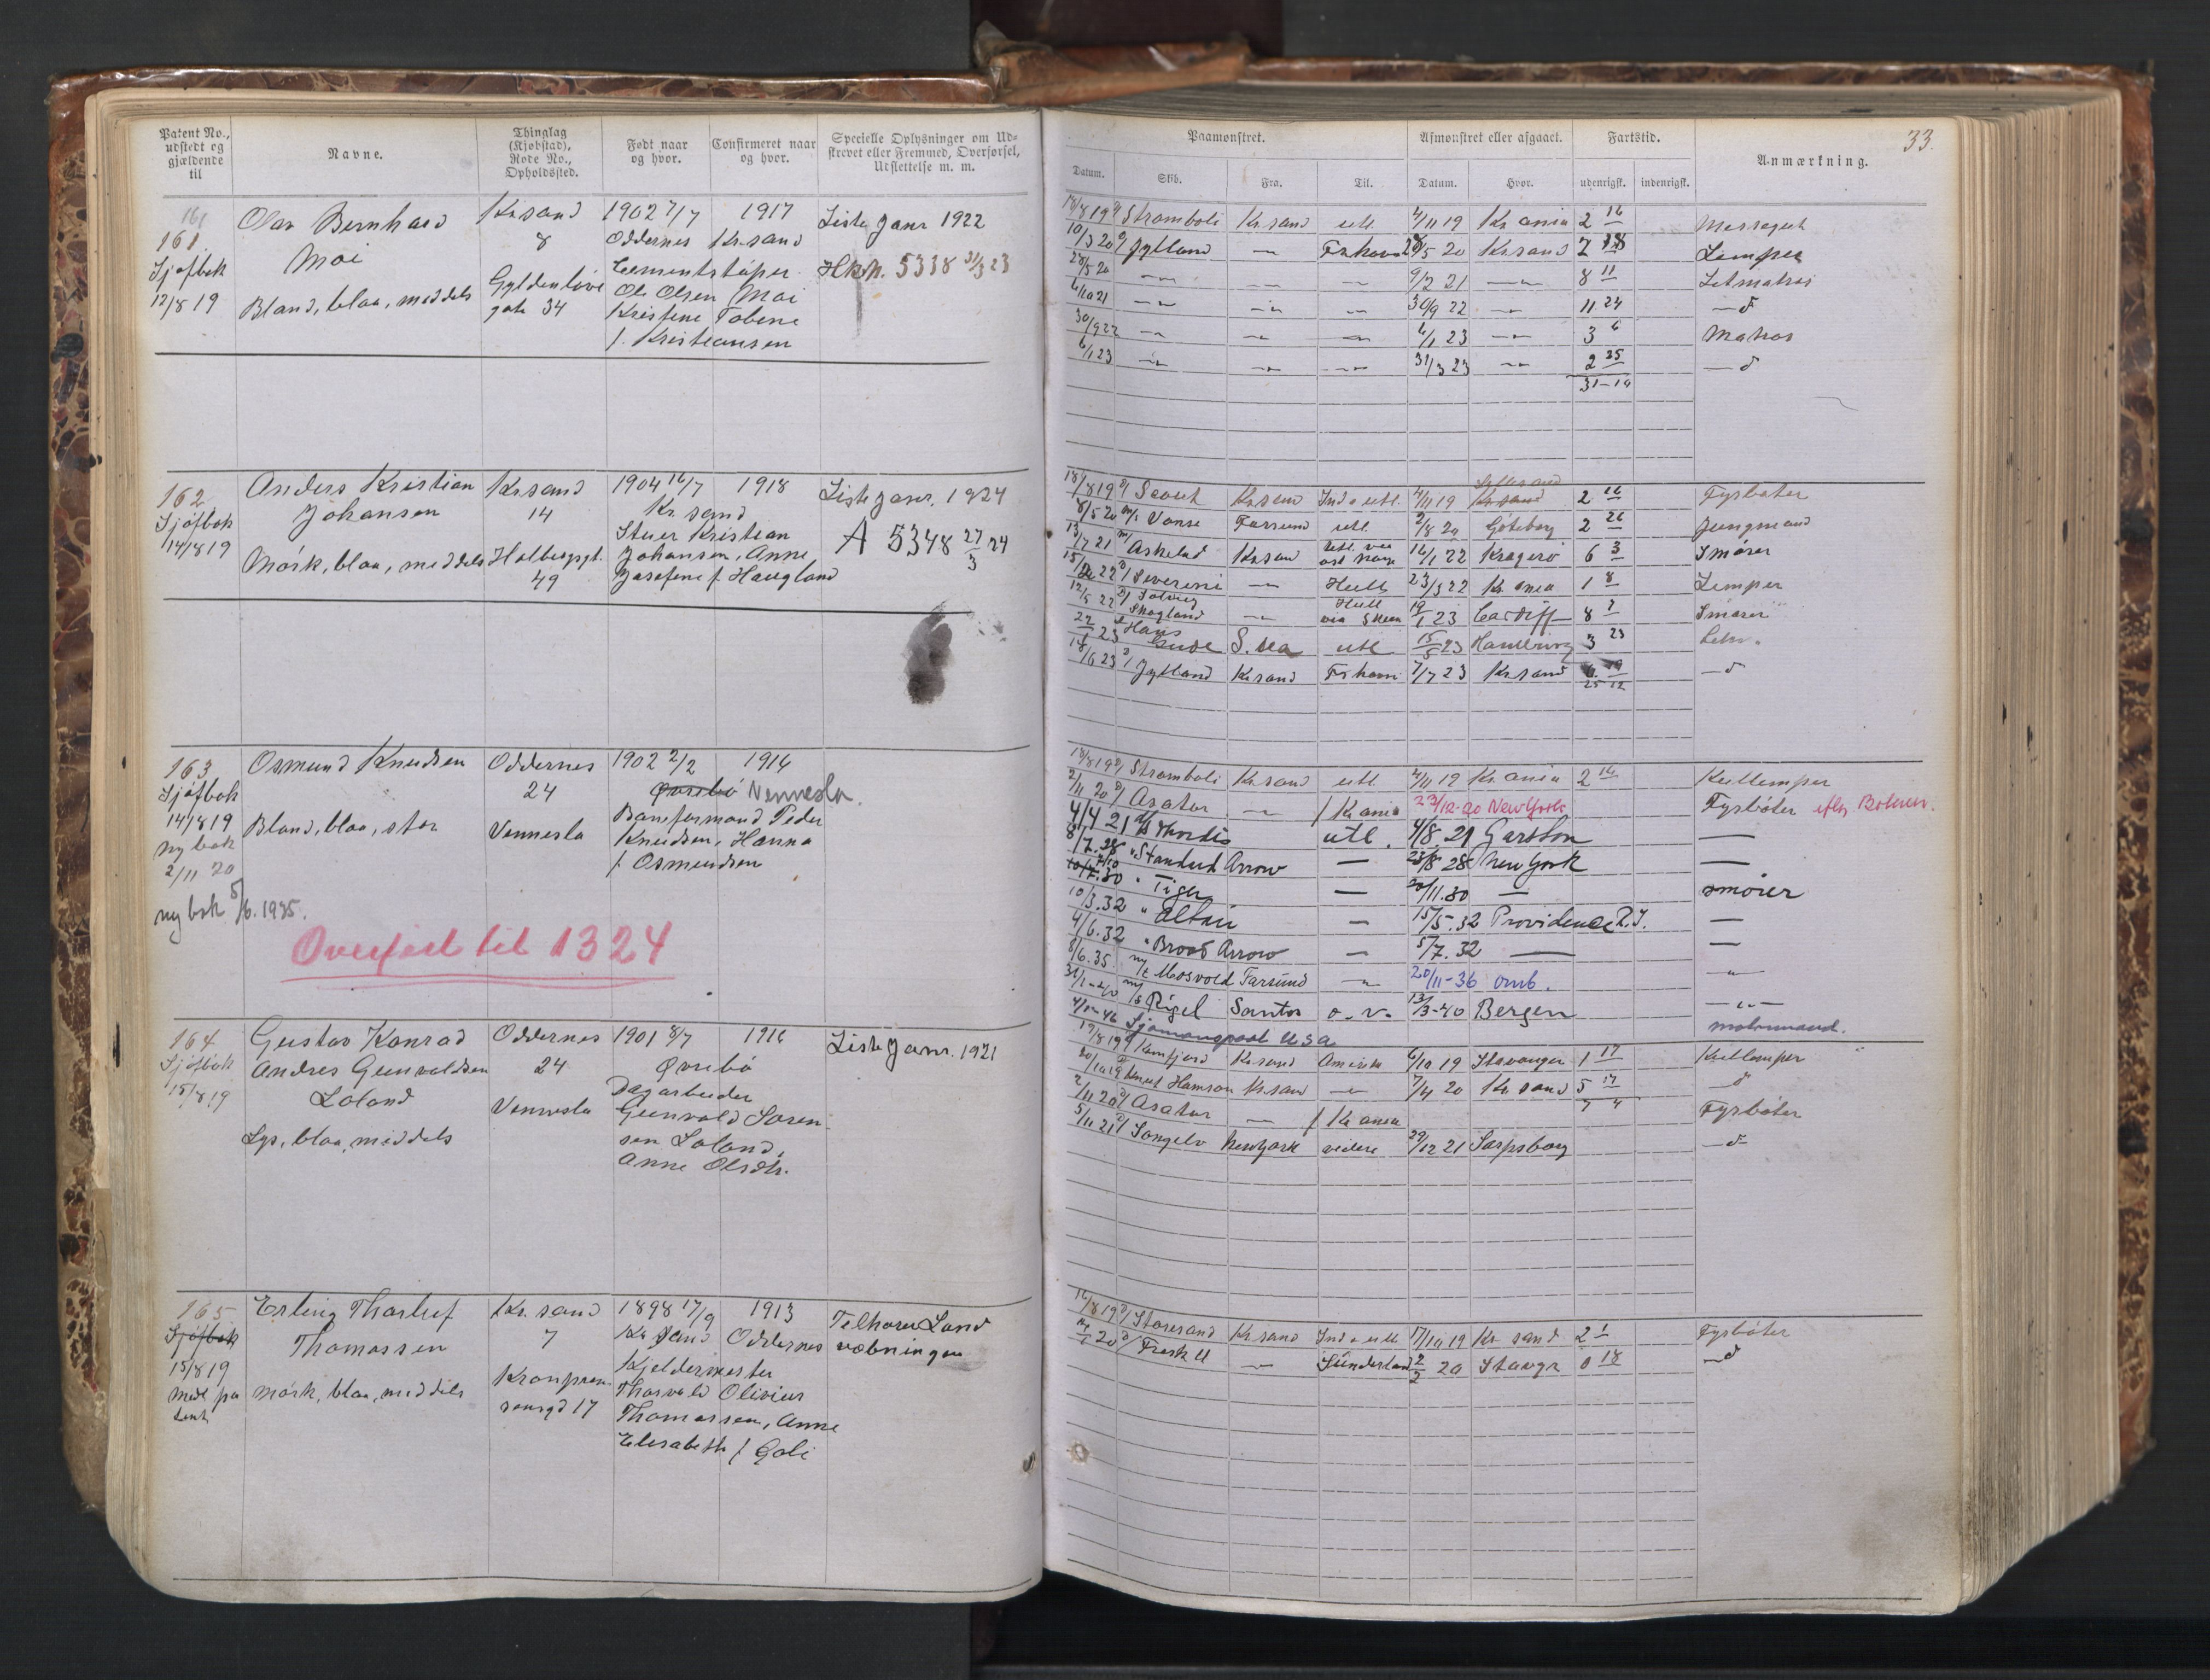 Patent No., udstedt og gjældende til
Navne.
Thinglag (Kjøbstad), Rode No., Opholdssted.
Født naar og hvor.
Confirmeret naar og hvor.
Specielle Oplysninger om Udskrevet eller Fremmed, Overførsel, Udslettelse m. m.
161
161
Sjøfbok
12/8 19
Olav Bernhard
Moi
Blond, blaa, meddels
Kr.sand
8
Gyldenløve
gate 34
1902 7/7 1917
Oddernes Kr.sand
Cementstøper
Ole Olsen Moi
Kristine Tobine
f. Kristiansen
Liste Janr 1922
5338 31/3 23
162
Sjøfbok
14/8 19
Anders Kristian
Johansen
Mørk, blaa, meddels
Kr.sand
14
Holbergsgt.
49
1904 16/7 1918
Kr sand
Stuer Kristian
Johansen, Anne
Josefine f. Haugland
Liste Janr. 1924
A 5348 27/3 24
163
Sjøfbok
14/8 19
ny bok
2/11 20
ny bok 5/6.1935.
Osmund Knudsen
Blond, blaa, stor
Oddernes
24
Vennesla
1902 2/2 1916
Øvrebø Vennesla.
Baneformand Peder
Knudsen, Hanna
f. Osmundsen
Overført til 1324
164
Sjøfbok
15/8 19
Gustav Konrad
Andres Gunvaldsen
Loland
Lys, blaa, meddels
Oddernes
24
Vennesla
1901 8/7 1916
Øvrebø
Dagarbeider
Gunvald Soren
sen Loland,
Anne Olsdtr.
Liste Janr. 1921
165
Sjøfbok
15/8 19
Medl pa
tent
Erling Thorleif
Thomassen
Mørk, blaa, meddels
Kr. sand
7
Kronprin
sensgd 17
1898 17/9 1913
Kr sand Oddernes
Kjeldermester
Thorvald Olivius
Thomassen, Anne
Elisabeth f Goli
Tilhører Land
væbningen
Paamønstret.
Afmønstret eller afgaaet.
Fartstid.
Anmærkning.
33.
Datum. Skib. Fra. Til. Datum. Hvor. udenrigsk. indenrigsk.
18/8 19 Stromboli Kr.sand utl. 4/11 19 Kr ania 2 16 Messegut
10/3 20 Jylland — Frhavn 28/5 20 Kr.sand 2 18 Lemper
28/5 20 — — — 9/2 21 — 8 11 Letmatros
6/10 21 — — — 30/9 22 — 11 24 — d
30/9 22 — — — 6/1 23 — 3 6 Matros
6/1 23 — — — 31/3 23 — 2 25 — d
31-10
18/8 19 Scout Kr.san Ind o utl. 4/11 19 Kr.sand 2 16 Fyrbøter
8/5 20 Vanse Farsund utl. 2/8 20 Göteborg 2 26 Jungmand
13/7 21 Askelad Kr.san 16/1 22 Kragerø 6 3 Smører
15/2 22 Severini — Hull 23/3 22 Kr ania 1 8 Lemper
12/5 22 Solveig Skogland — Hull via Skien 19/1 23 Cardiff 8 7 Smører
22/1 23 Hans Gude S.sea utl 15/5 23 Hamburg 3 23
18/6 23 Jylland Kr.sand Frhavn 7/7 23 Kr.sand 19 — d
25 12
18/8 19 Stromboli Kr.sand utl 4/11 19 Kr.ania 2 16 Kullemper
2/11 20 Asatur — f Kr ania 23/12-20 New York Fyrbøter
4/4 21 Thordis utl. 4/8.21 Garston —
8/7.28 Standard Arrow — 28/8 28 New York —
10/7.30 Tiger — 20/11.30 — smører
10/3.32 Altair — 15/5.32 Providence R.I. —
4/6.32 Broad Arrow — 5/7.32 — —
8/6.35. Mosvold Farsund — 20/11-36 omb. — " —
31/1-40 Rigel Santos o.v. 13/3-40 Bergen — " —
Sjømannspool USA motormand.
19/8 19 Ranfjord Kr.sand Amerika 6/10 19 Stavanger 1 17 Kullemper
20/10 19 Knut Hamson Kr.san — 7/4 20 Kr sand 5 17 — d
7 4
2/11 20 Asatur — f Kr ania Fyrbøter
5/11 21 Songelv New York videre 29/12 21 Sarpsborg — d
16/8 19 Storesand Kr.sand Ind o utl 17/10 19 Kr sand 2 1 Fyrbøter
20 — Sunderland 2/2 20 Stavgr 0 18 — d